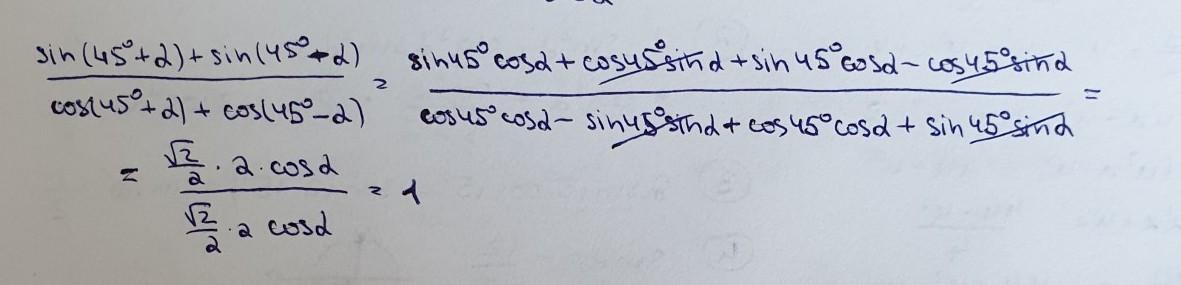 (sin(45°+α)+sin(45°-α))/(cos(45°+α)+cos(45°-α)) = (sin45°cosα+cos45°sinα+sin45°cosα-cos45°sinα)/(cos45°cosα-sin45°sinα+cos45°cosα+sin45°sinα) =
= (√2/2·2·cosα)/(√2/2·2cosα) = 1